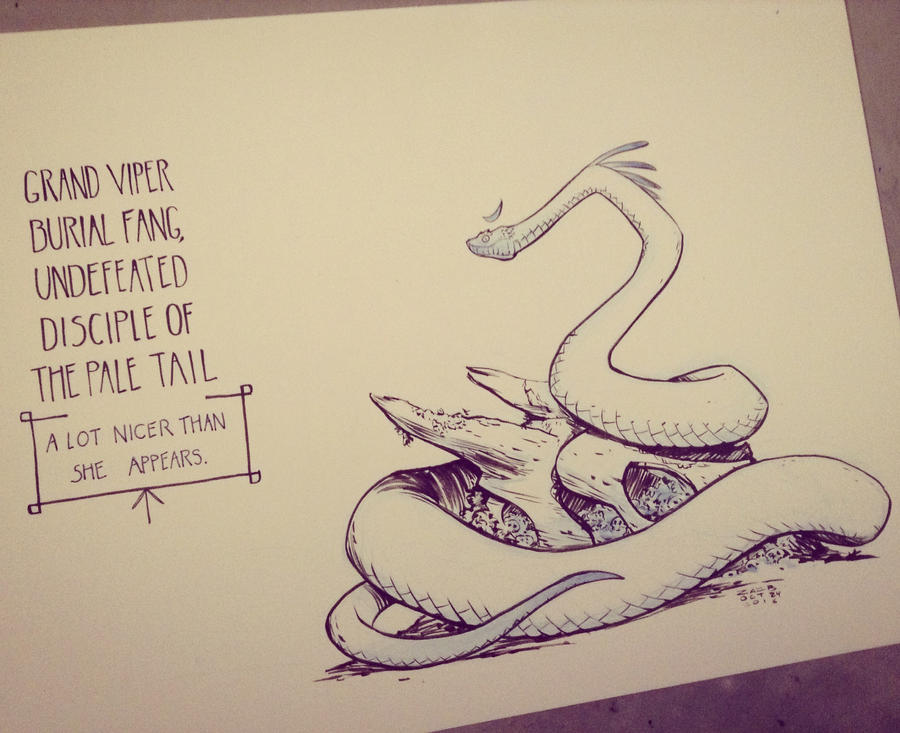 GRAND VIPER
BURIAL FANG,
UNDEFEATED
DISCIPLE OF
THE PALE TAIL
A LOT NICER THAN
SHE APPEARS.
OCT 24
2016